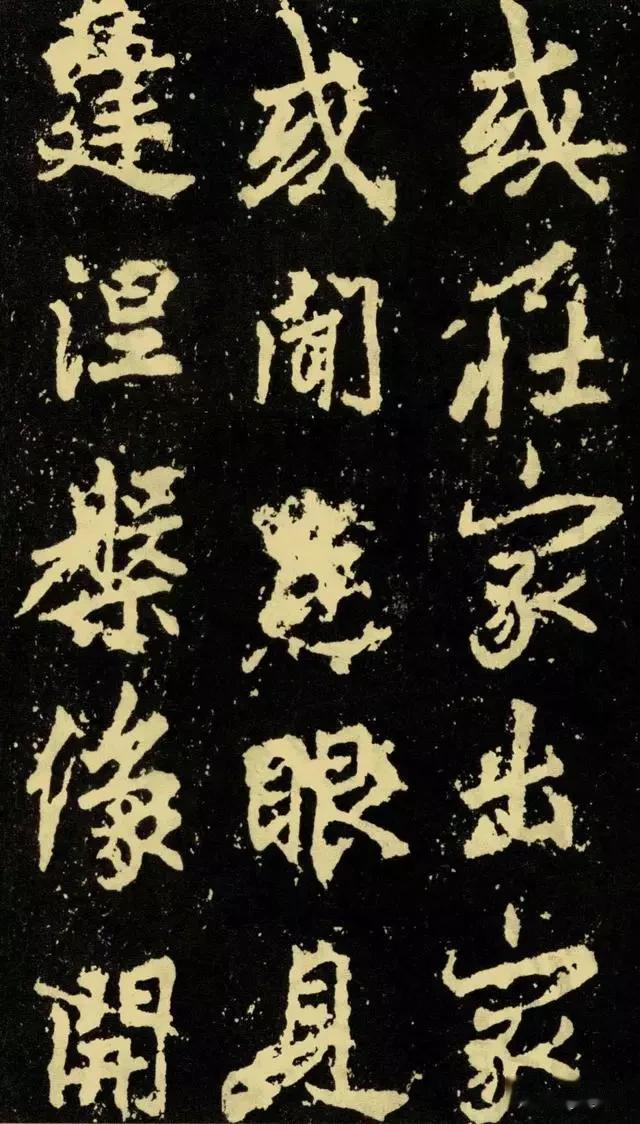 或莊家出家
或聞慧眼見
建涅槃像開